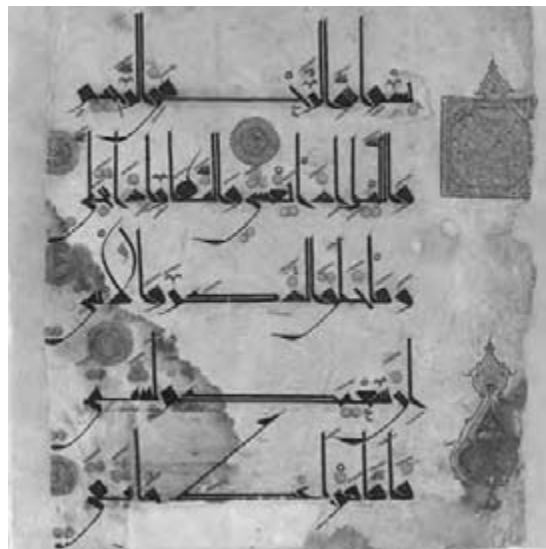 بسم الله الرحمن الرحيم
والليل اذا يغشى والنهار اذا تجلى
وما خلق الذكر والانثى
ان سعيكم لشتى
فاما من اعطى واتقى